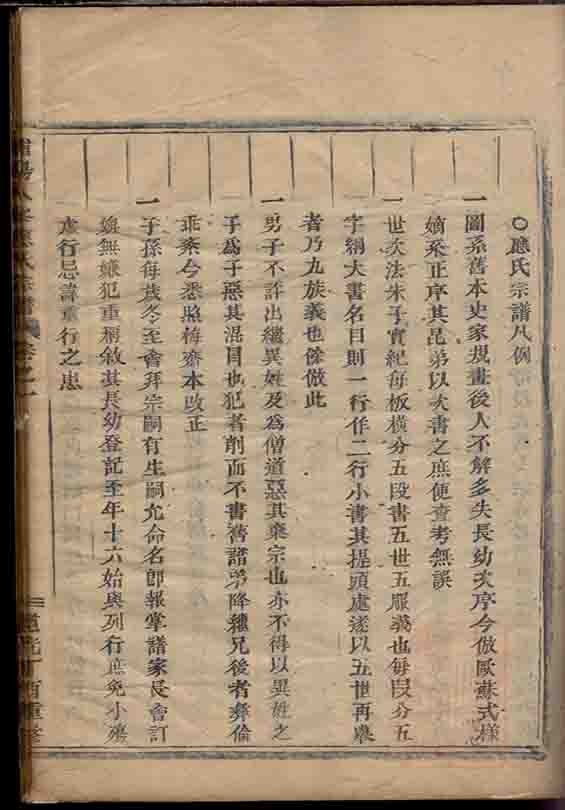 ○應氏宗譜凡例
一圖系舊本史家規畫後人不解多失長幼次序今倣歐蘇式樣
嫡系正序其昆弟以次書之庶便查考無誤
一世次法朱子實紀每板橫分五段書五世五服義也每段分五
字綱大書名目則一行作二行小書其提頭處遂以五世再舉
者乃九族義也餘倣此
一男子不許出繼異姓及為僧道惡其棄宗也亦不得以異姓之
子爲子惡其混冒也犯者削而不書舊譜弟降繼兄後者彜倫
乖紊今悉照梅齋本改正
一子孫每歲冬至會拜宗嗣有生嗣允命名卽報掌譜家長會訂
無嫌犯重稱敘其長幼登記至年十六始與列行庶免小殤
虛行忌諱重行之患
應氏宗譜 卷之一
道光丁酉重修